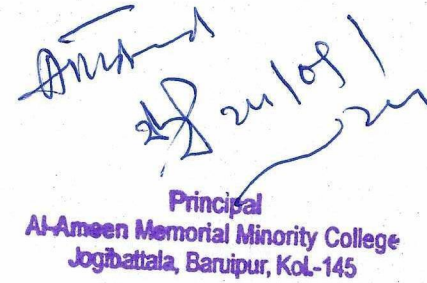 Attested
24/09/
24
Principal
Al-Ameen Memorial Minority College
Jogibattala, Baruipur, Kol.-145